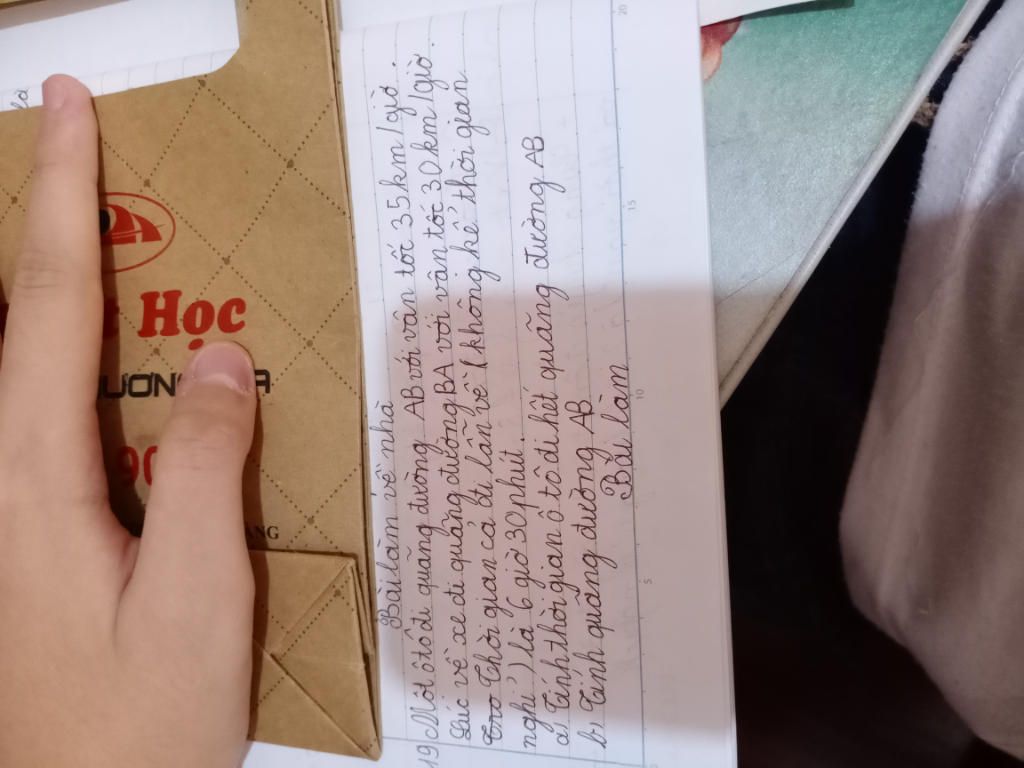 Bài làm về nhà
19 Một ô tô đi quãng đường AB với vân tốc 35km/giờ.
Lúc về xe đi quãng đường BA với vân tốc 30km/giờ.
Thời gian cả đi lẫn về (không kể thời gian
nghỉ) là 6 giờ 30 phút.
a, Tính thời gian ô tô đi hết quãng đường AB
b, Tính quãng đường AB.
Bài làm
Học
90
5
10
15
20